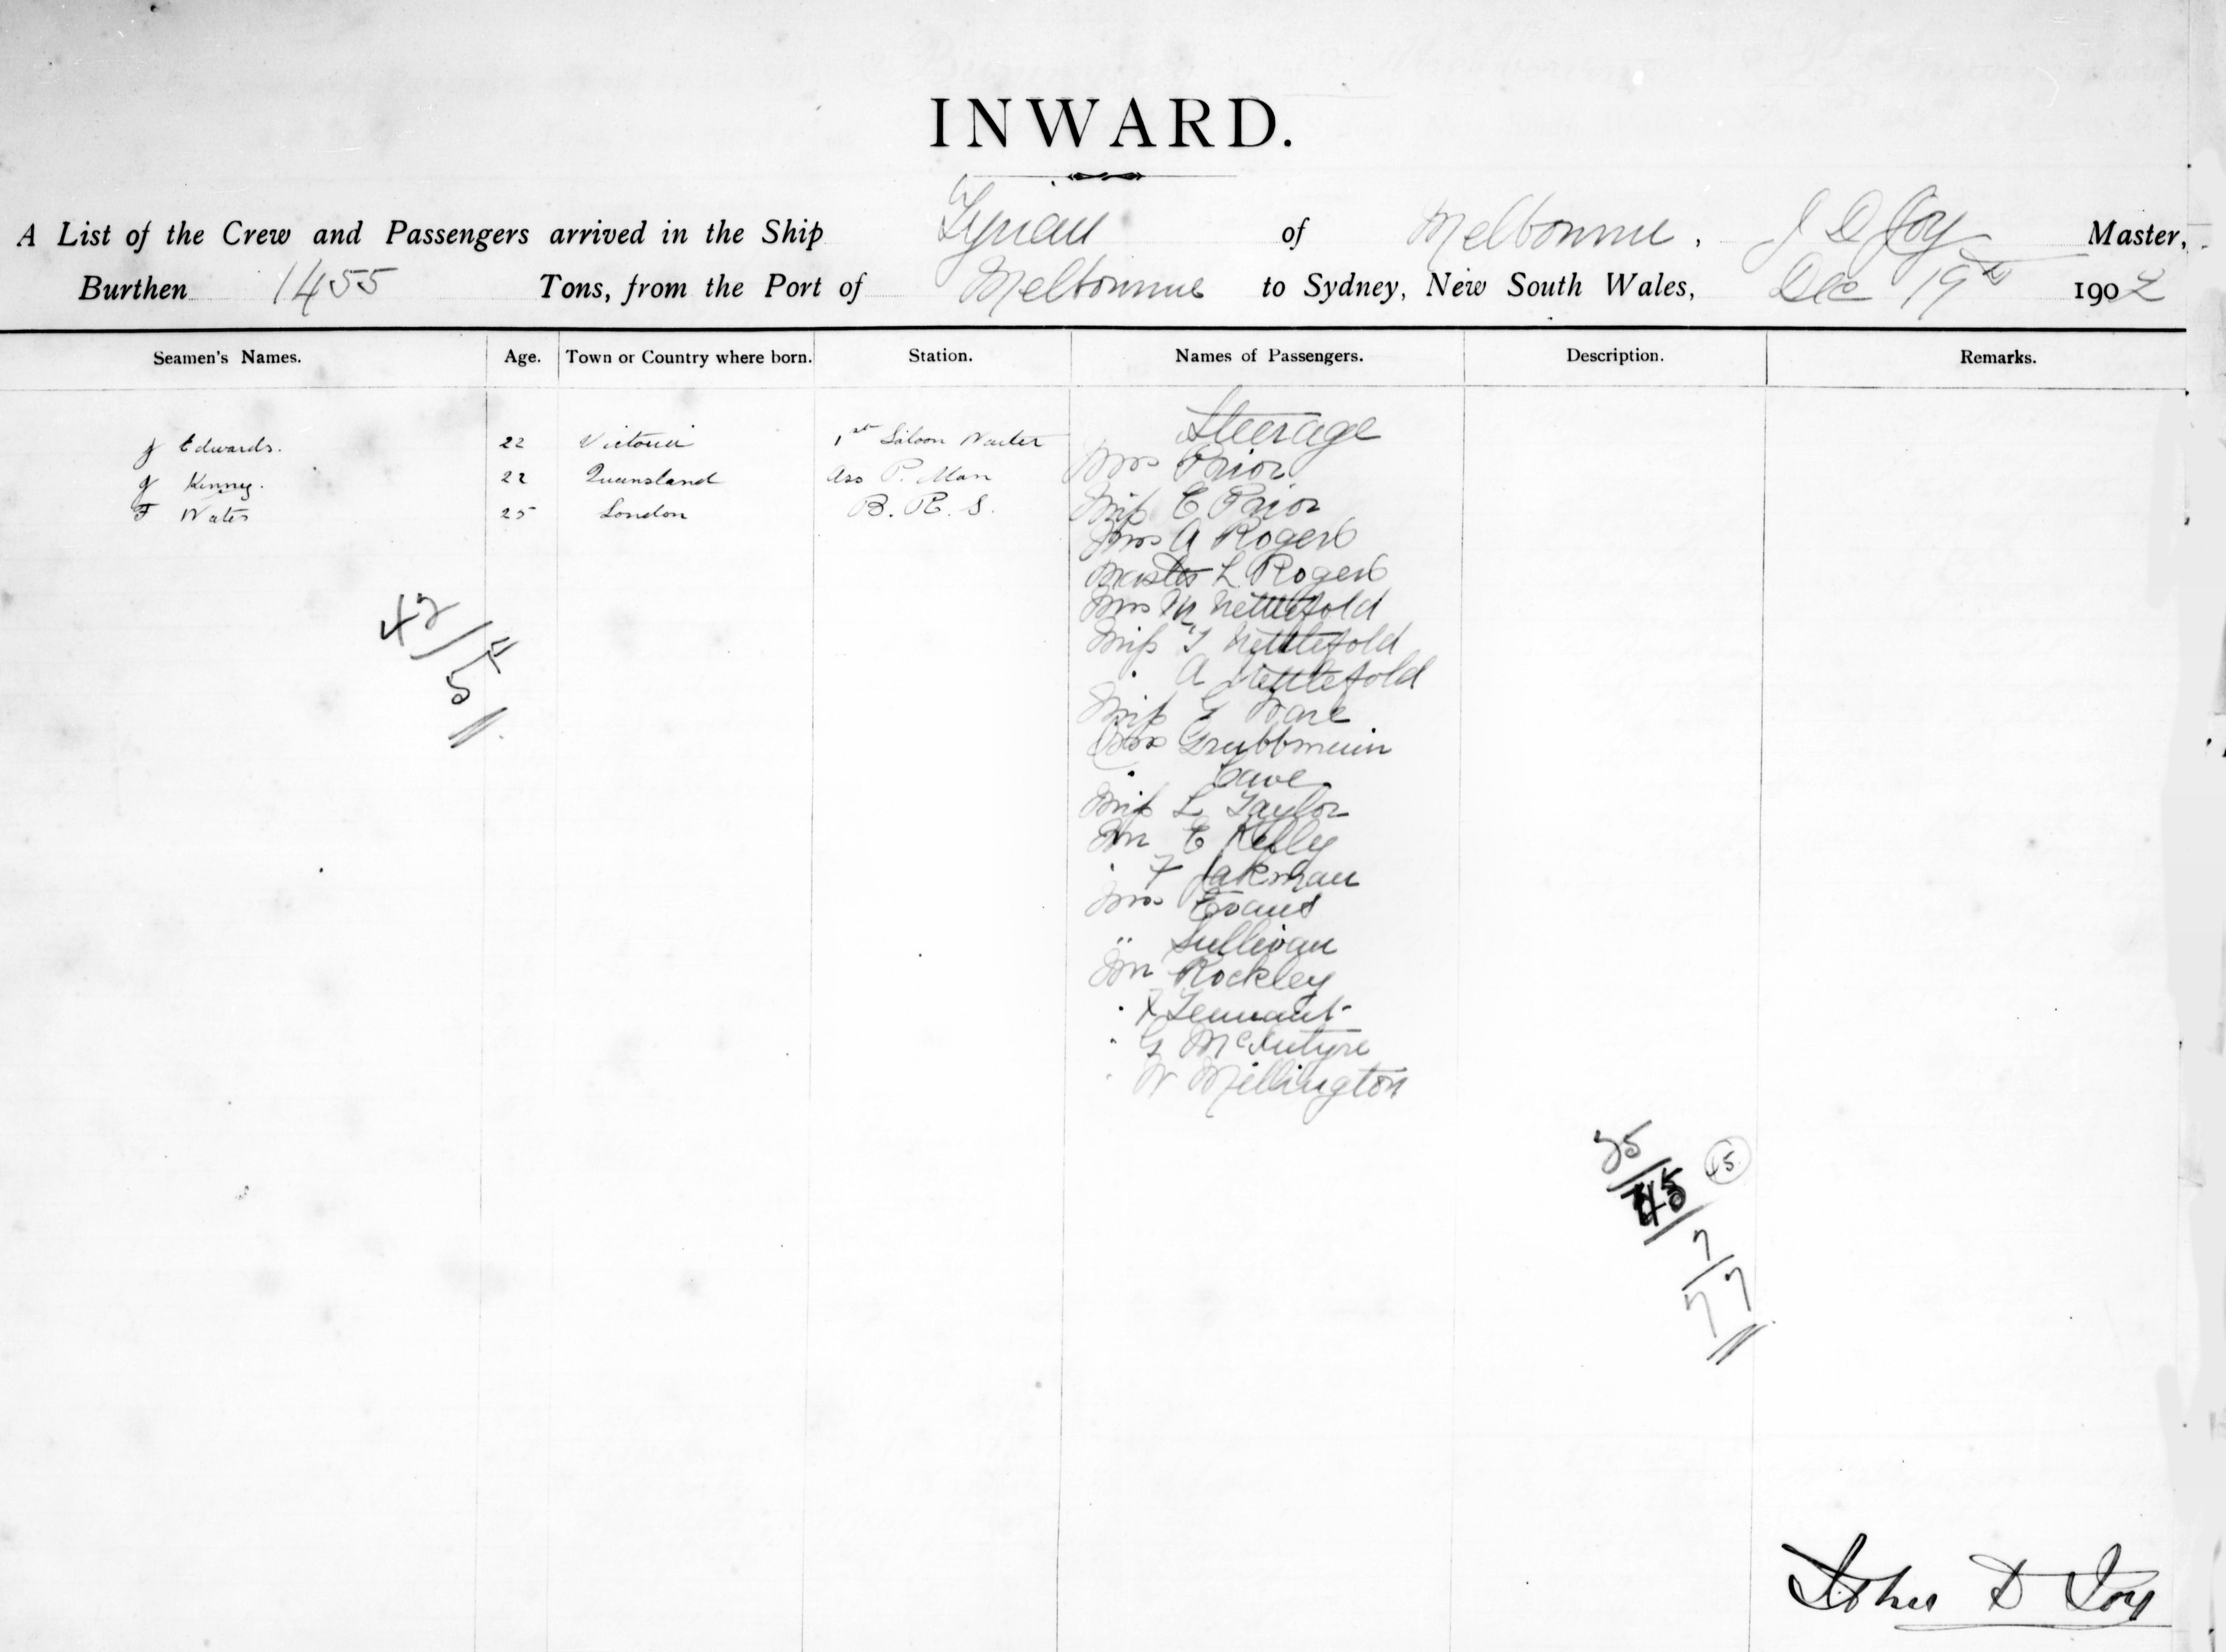 INWARD.
A List of the Crew and Passengers arrived in the Ship Tyrian of Melbourne, J D Joy Master,
Burthen 1455 Tons, from the Port of Melbourne to Sydney, New South Wales, Dec 19th 1902
Seamen's Names. Age. Town or Country where born. Station. Names of Passengers. Description. Remarks.
Steerage
J Edwards. 22 Victoria 1st Saloon Waiter
Mrs Prior
J Kenny. 22 Queensland Ass P. Man
Miss C Prior
F Wates 25 London B. R. S.
Mrs A Rogers
Master L Rogers
Mrs M Nettlefold
Miss I Nettlefold
" A Nettlefold
Miss G Ware
Mrs
" Cave
Miss L Taylor
Mr E Kelly
" F Jakman
Mrs Evans
" Sullivan
Mr Rockley
" Tennant
" G McIntyre
" W Millington
42/4
51
35
45
15.
7
77
John D Joy